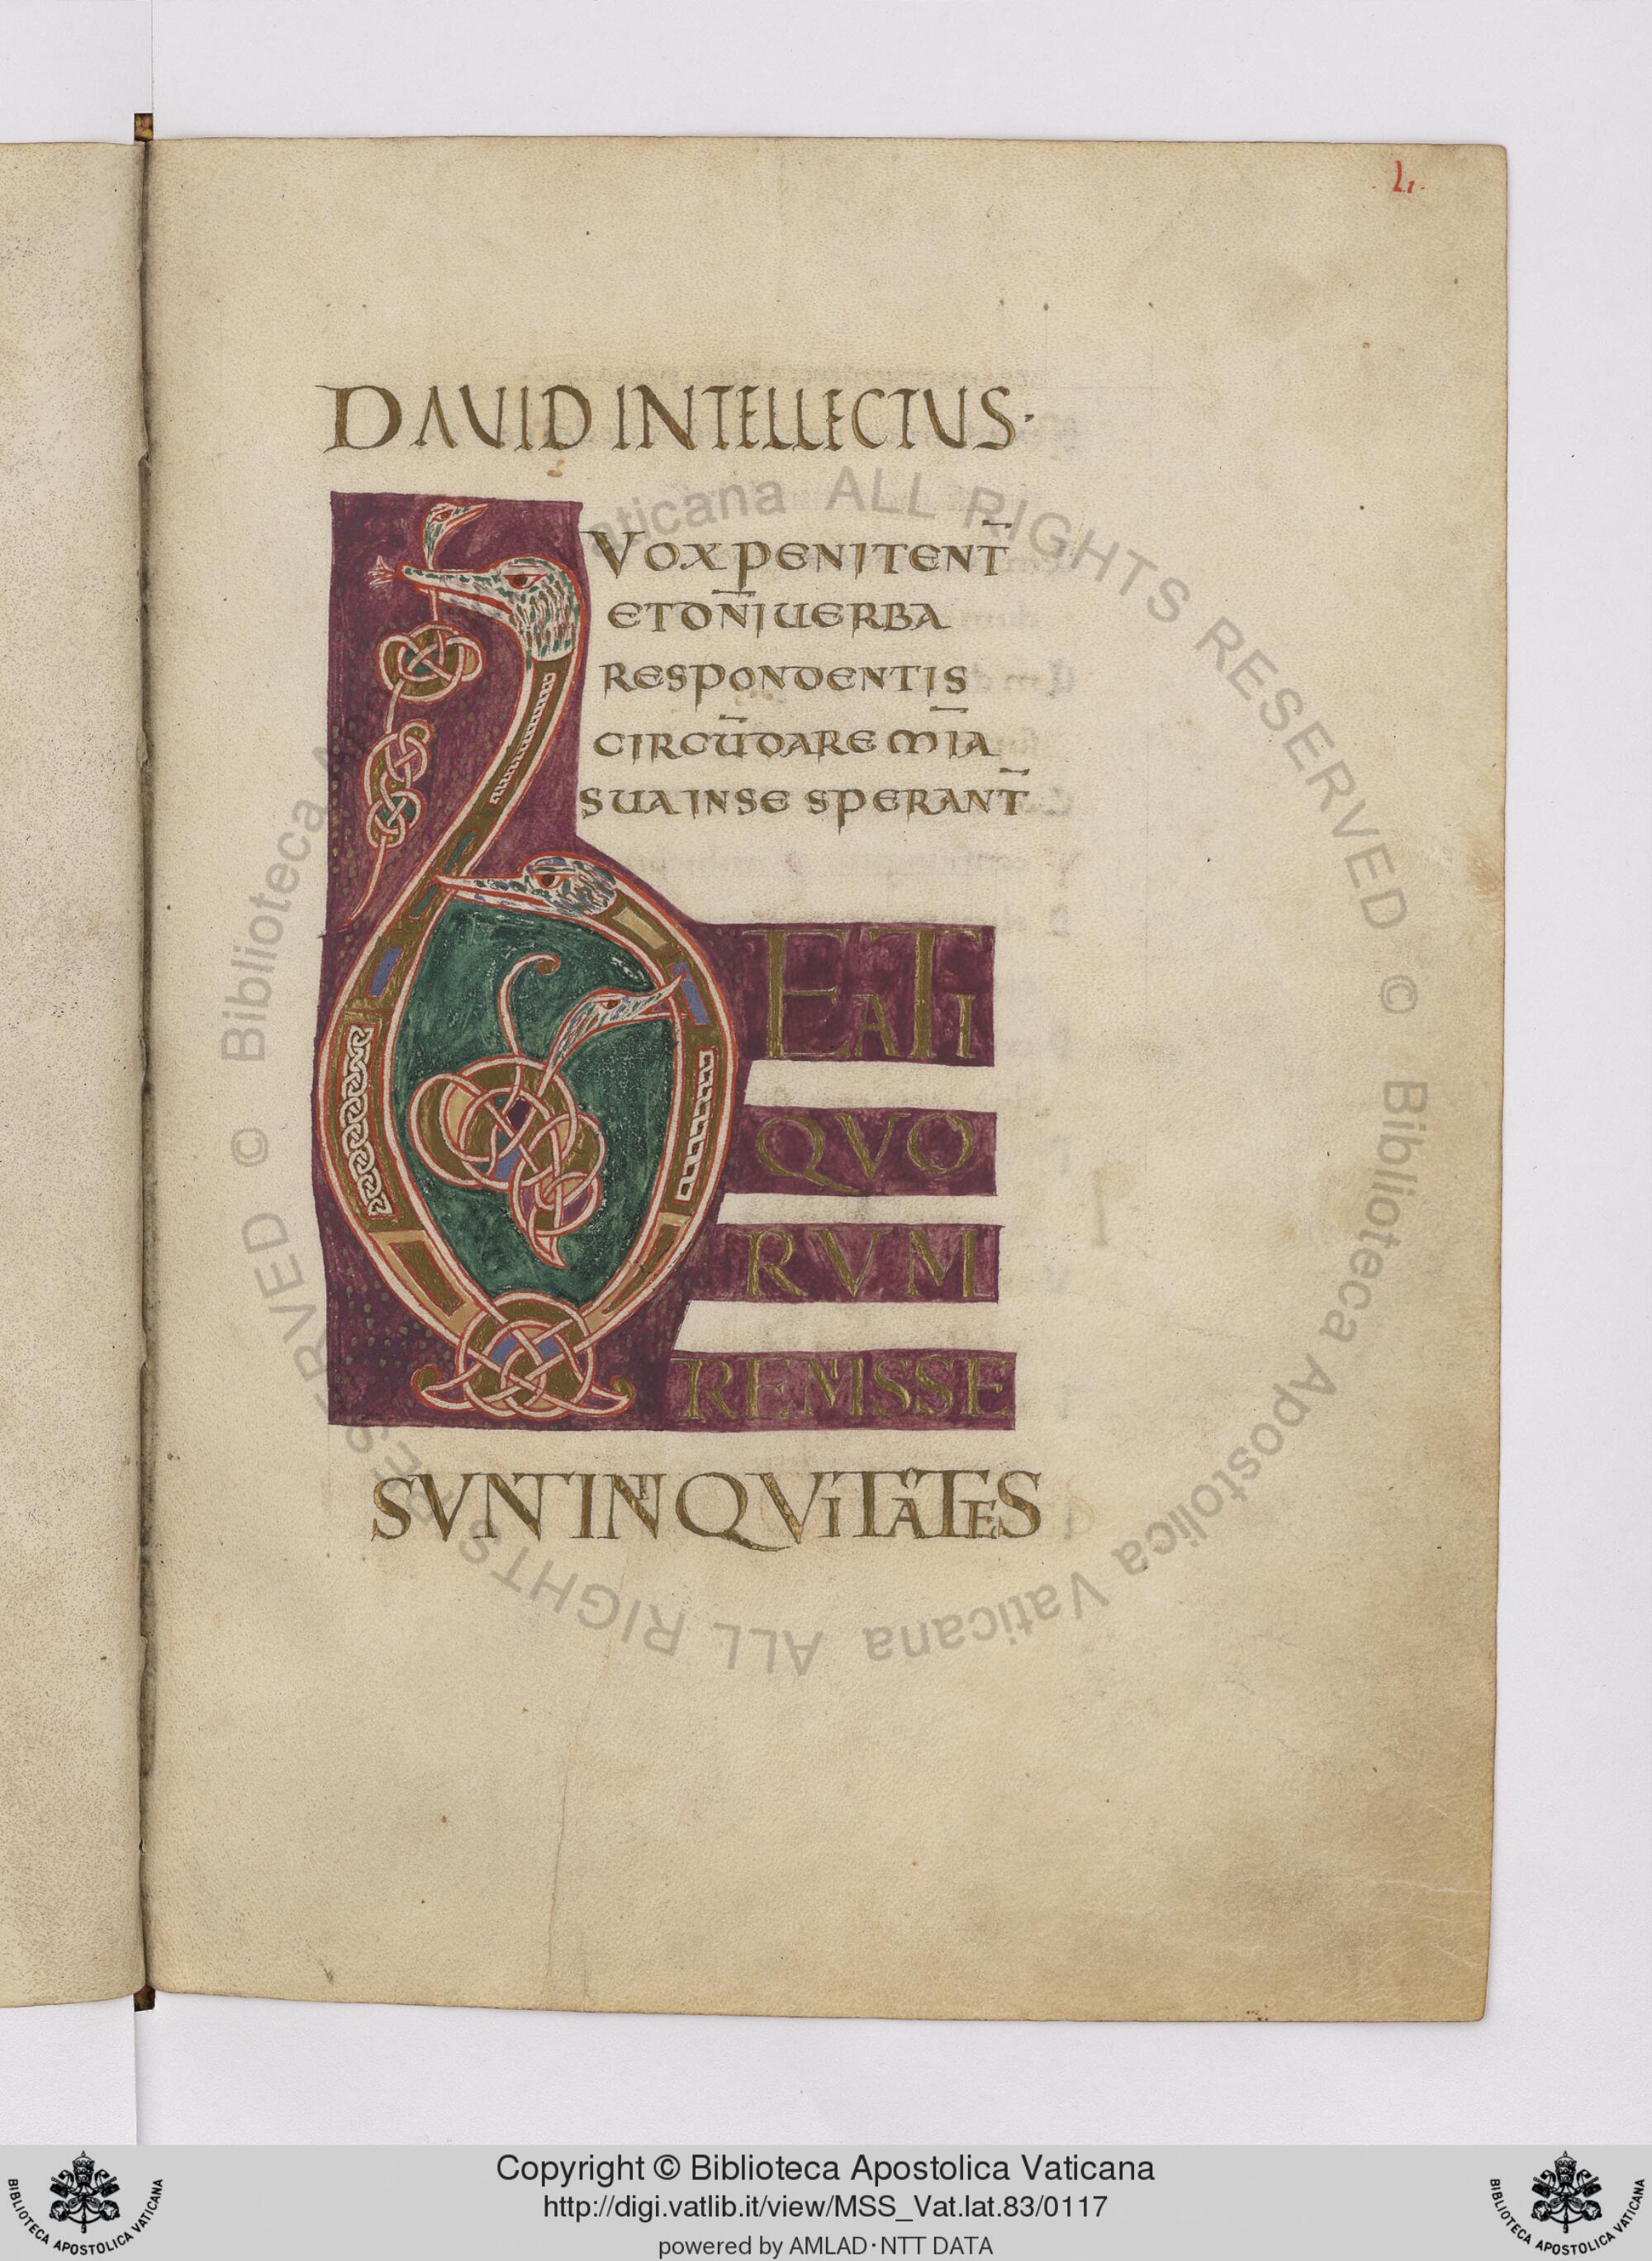 L.
DAUID INTELLECTUS·
VOX PENITENT̄
ET DN̄I UERBA
RESPONDENTIS
CIRCŪDARE M̄IA
SUA IN SE SPERANT̄
BEATI
QVO
RVM
REMISSE
SVNT INIQVITATES
© Biblioteca Apostolica Vaticana ALL RIGHTS RESERVED © Biblioteca Apostolica Vaticana ALL RIGHTS RESERVED
BIBLIOTECA APOSTOLICA VATICANA
Copyright © Biblioteca Apostolica Vaticana
http://digi.vatlib.it/view/MSS_Vat.lat.83/0117
powered by AMLAD·NTT DATA
BIBLIOTECA APOSTOLICA VATICANA